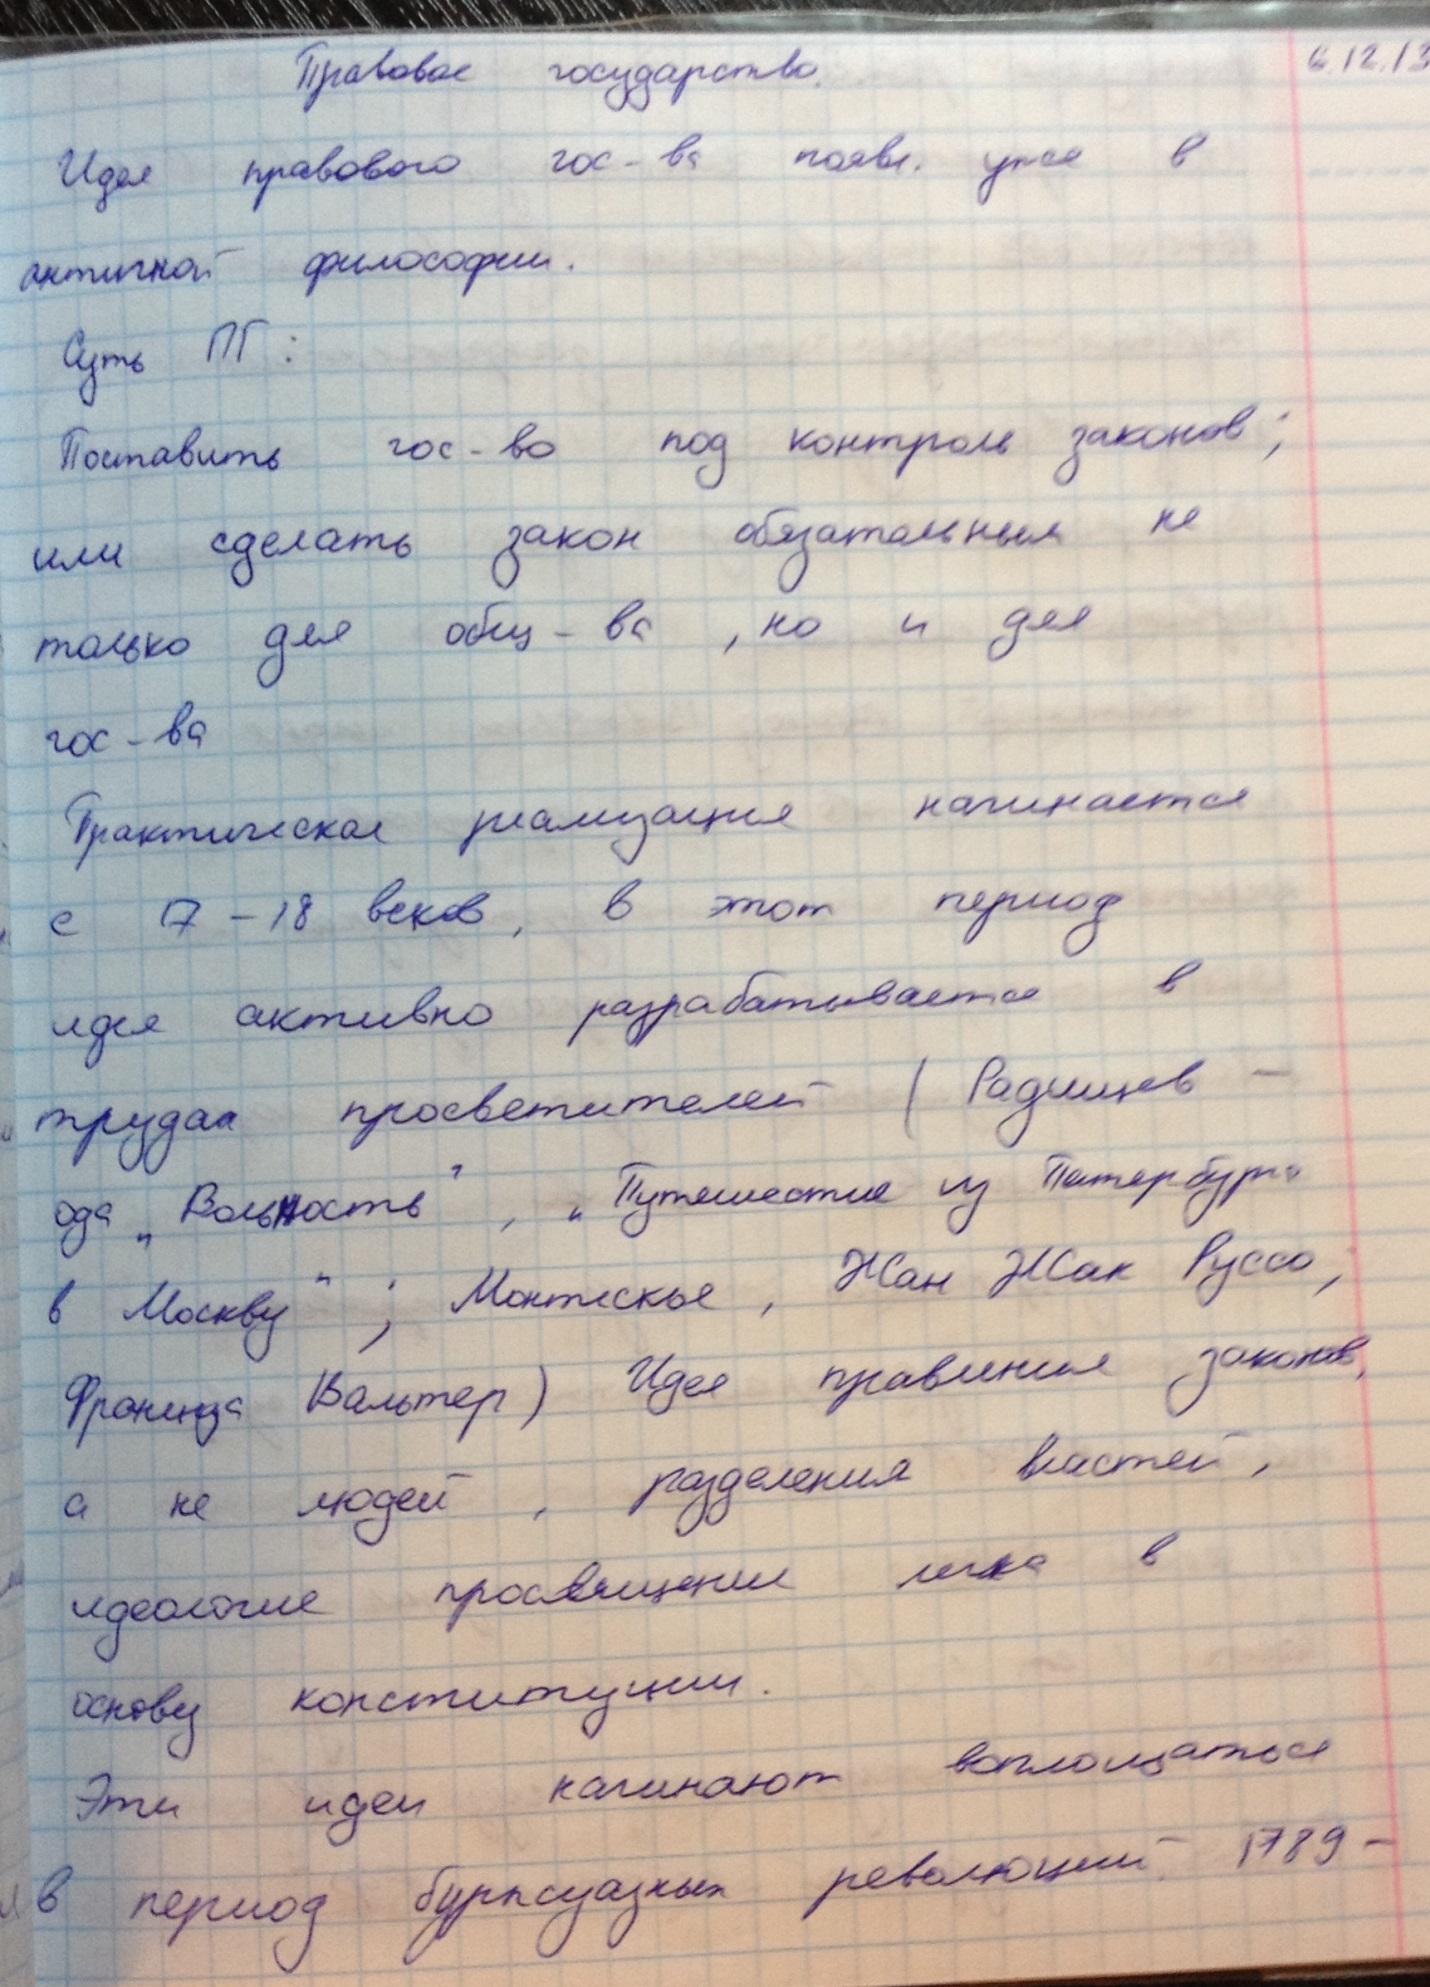 Правовое государство. 6.12.13
Идея правового гос-ва появл. уже в
античной философии.
Суть ПГ:
Поставить гос-во под контроль законов;
или сделать закон обязательным не
только для общ-ва, но и для
гос-ва
Практическая реализация начинается
с 17-18 веков, в этот период
идея активно разрабатывается в
трудах просветителей (Радищев -
ода „Вольность", „Путешествие из Питербурга
в Москву"; Монтескье, Жан Жак Руссо,
Француза Вальтер) Идея правления законов,
а не людей, разделения властей,
идеология просвящении легла в
основу конституции.
Эти идеи начинают воплощаться
в период буржуазных революций. 1789-